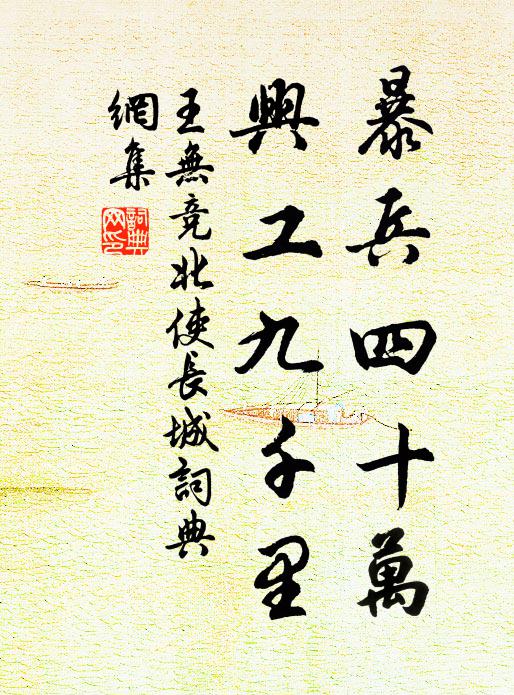 暴兵四十萬
興工九千里
王無競北使長城詞典
網集
詞典
网印